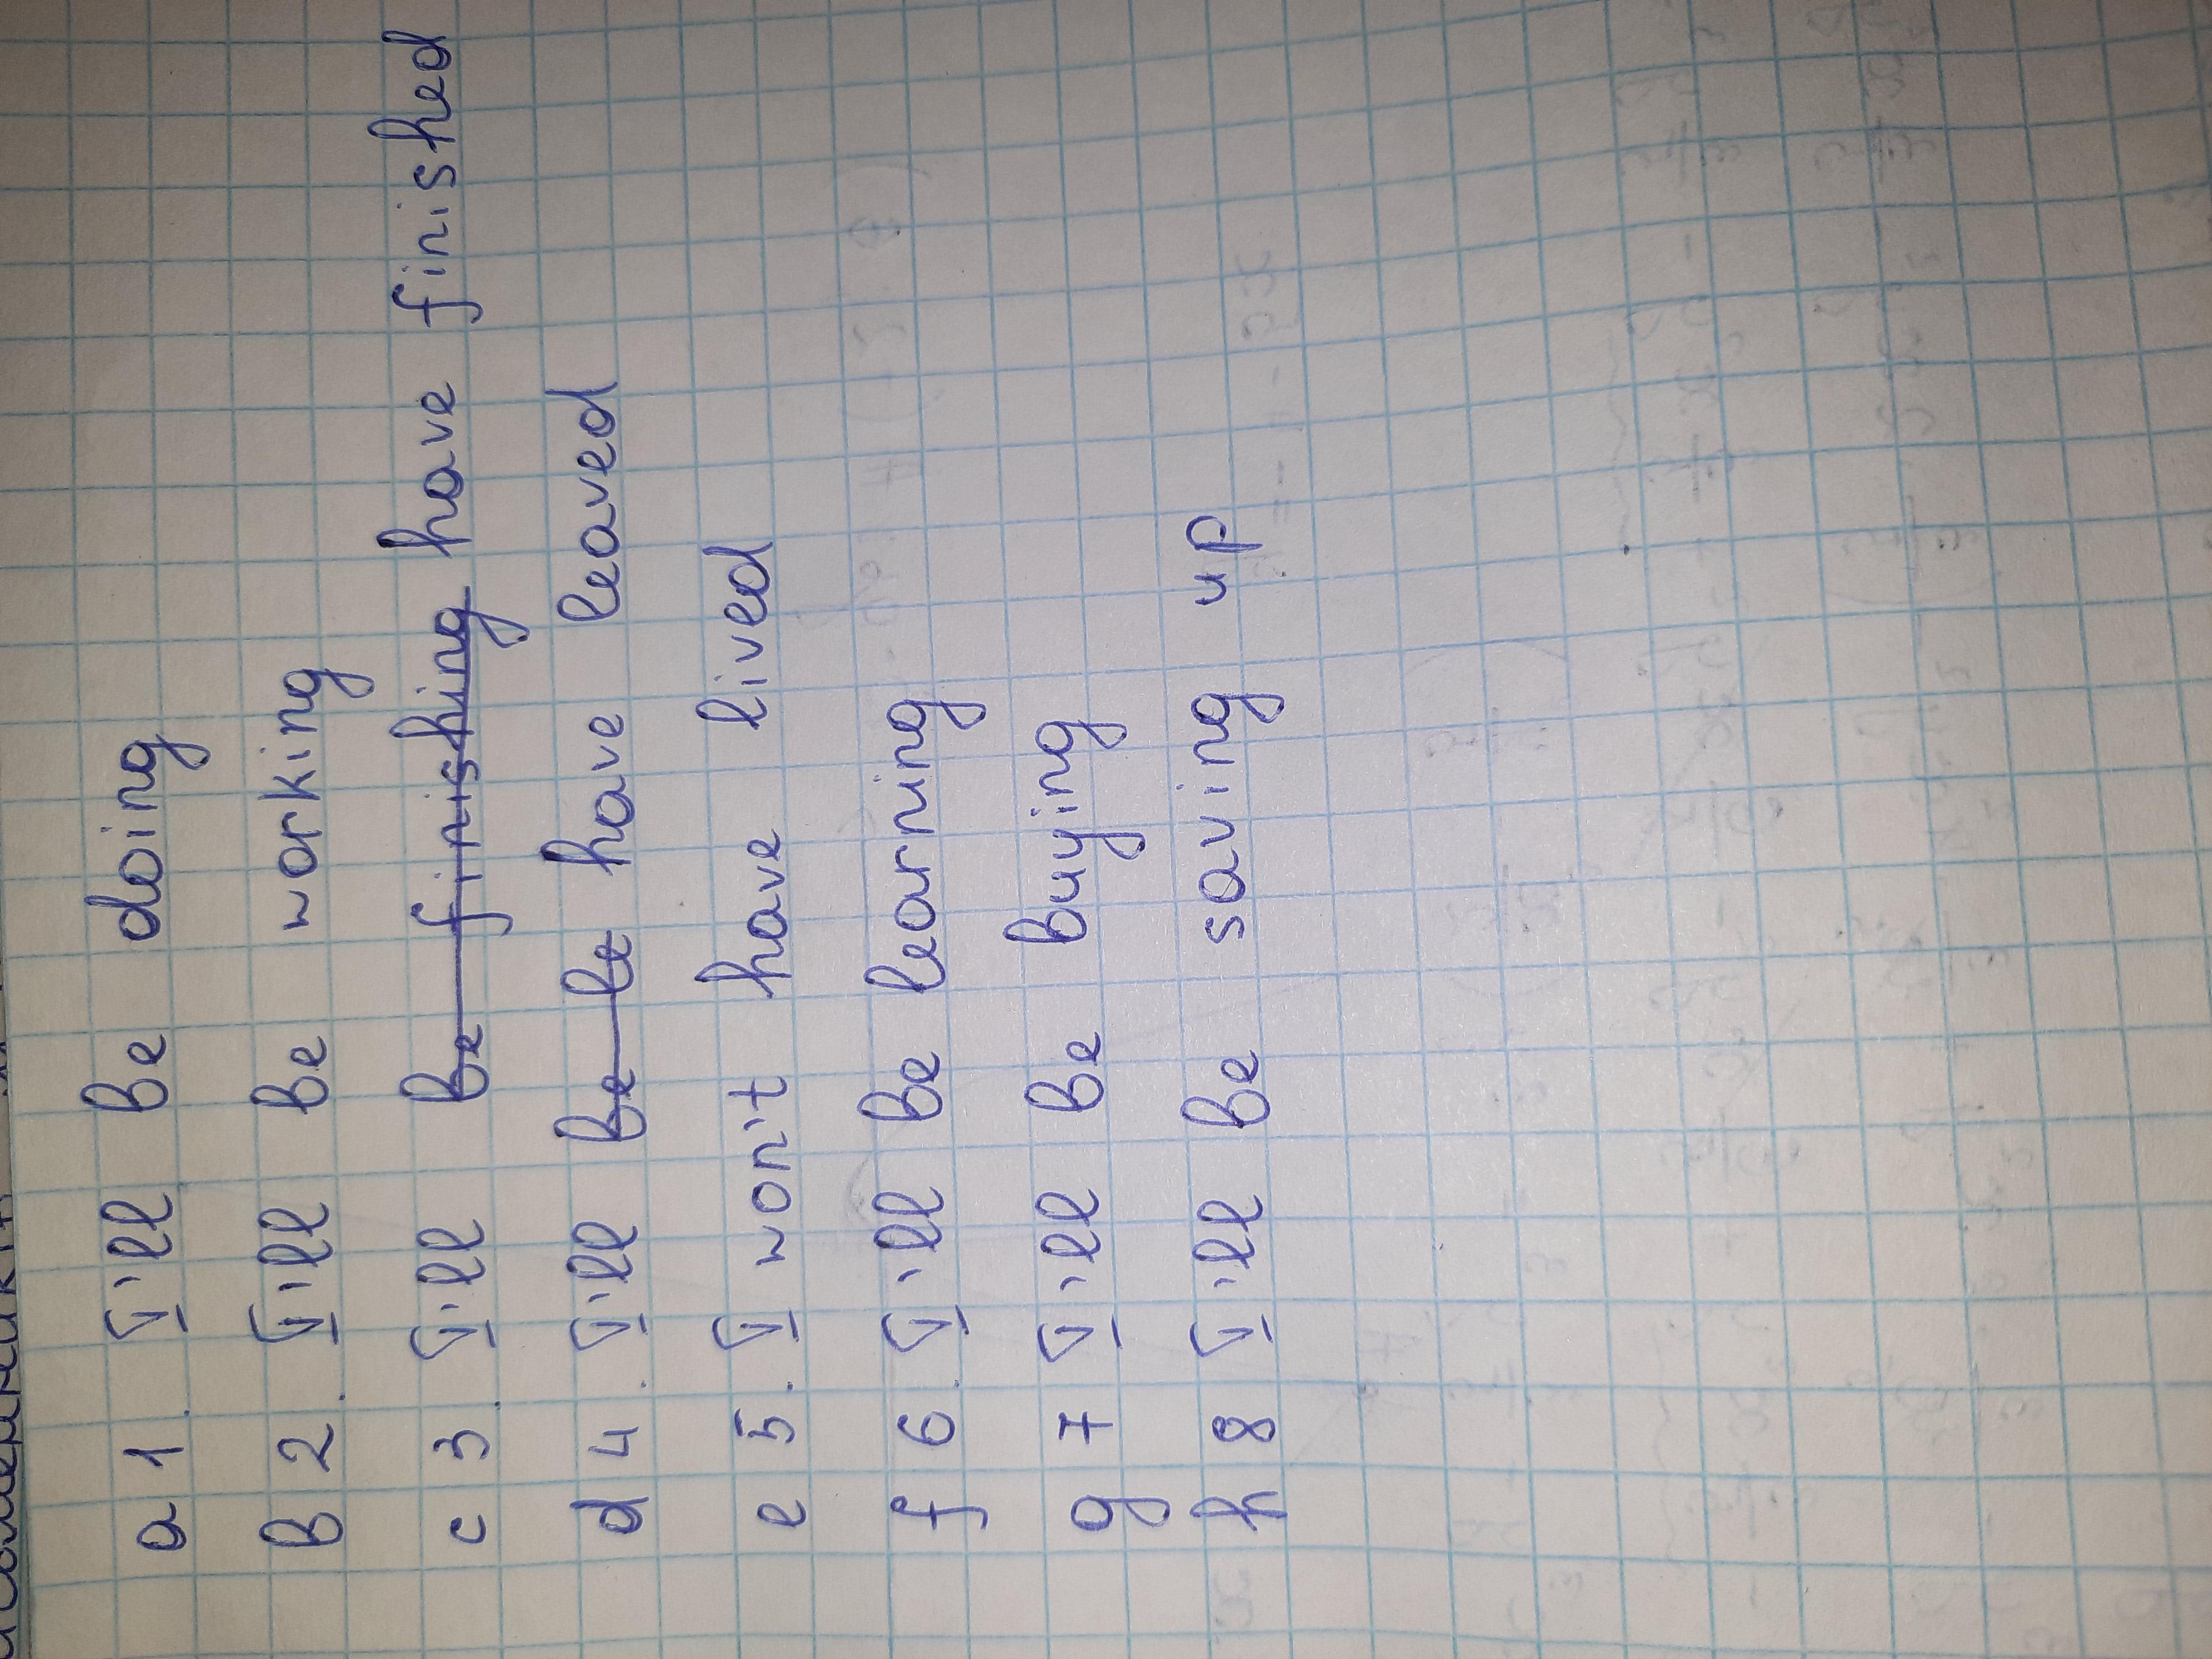 a 1. I'll be doing
b 2. I'll be working
c 3. I'll be finishing have finished
d 4. I'll be le have leaved
e 5. I won't have lived
f 6. I'll be learning
g 7 I'll be buying
h 8 I'll be saving up